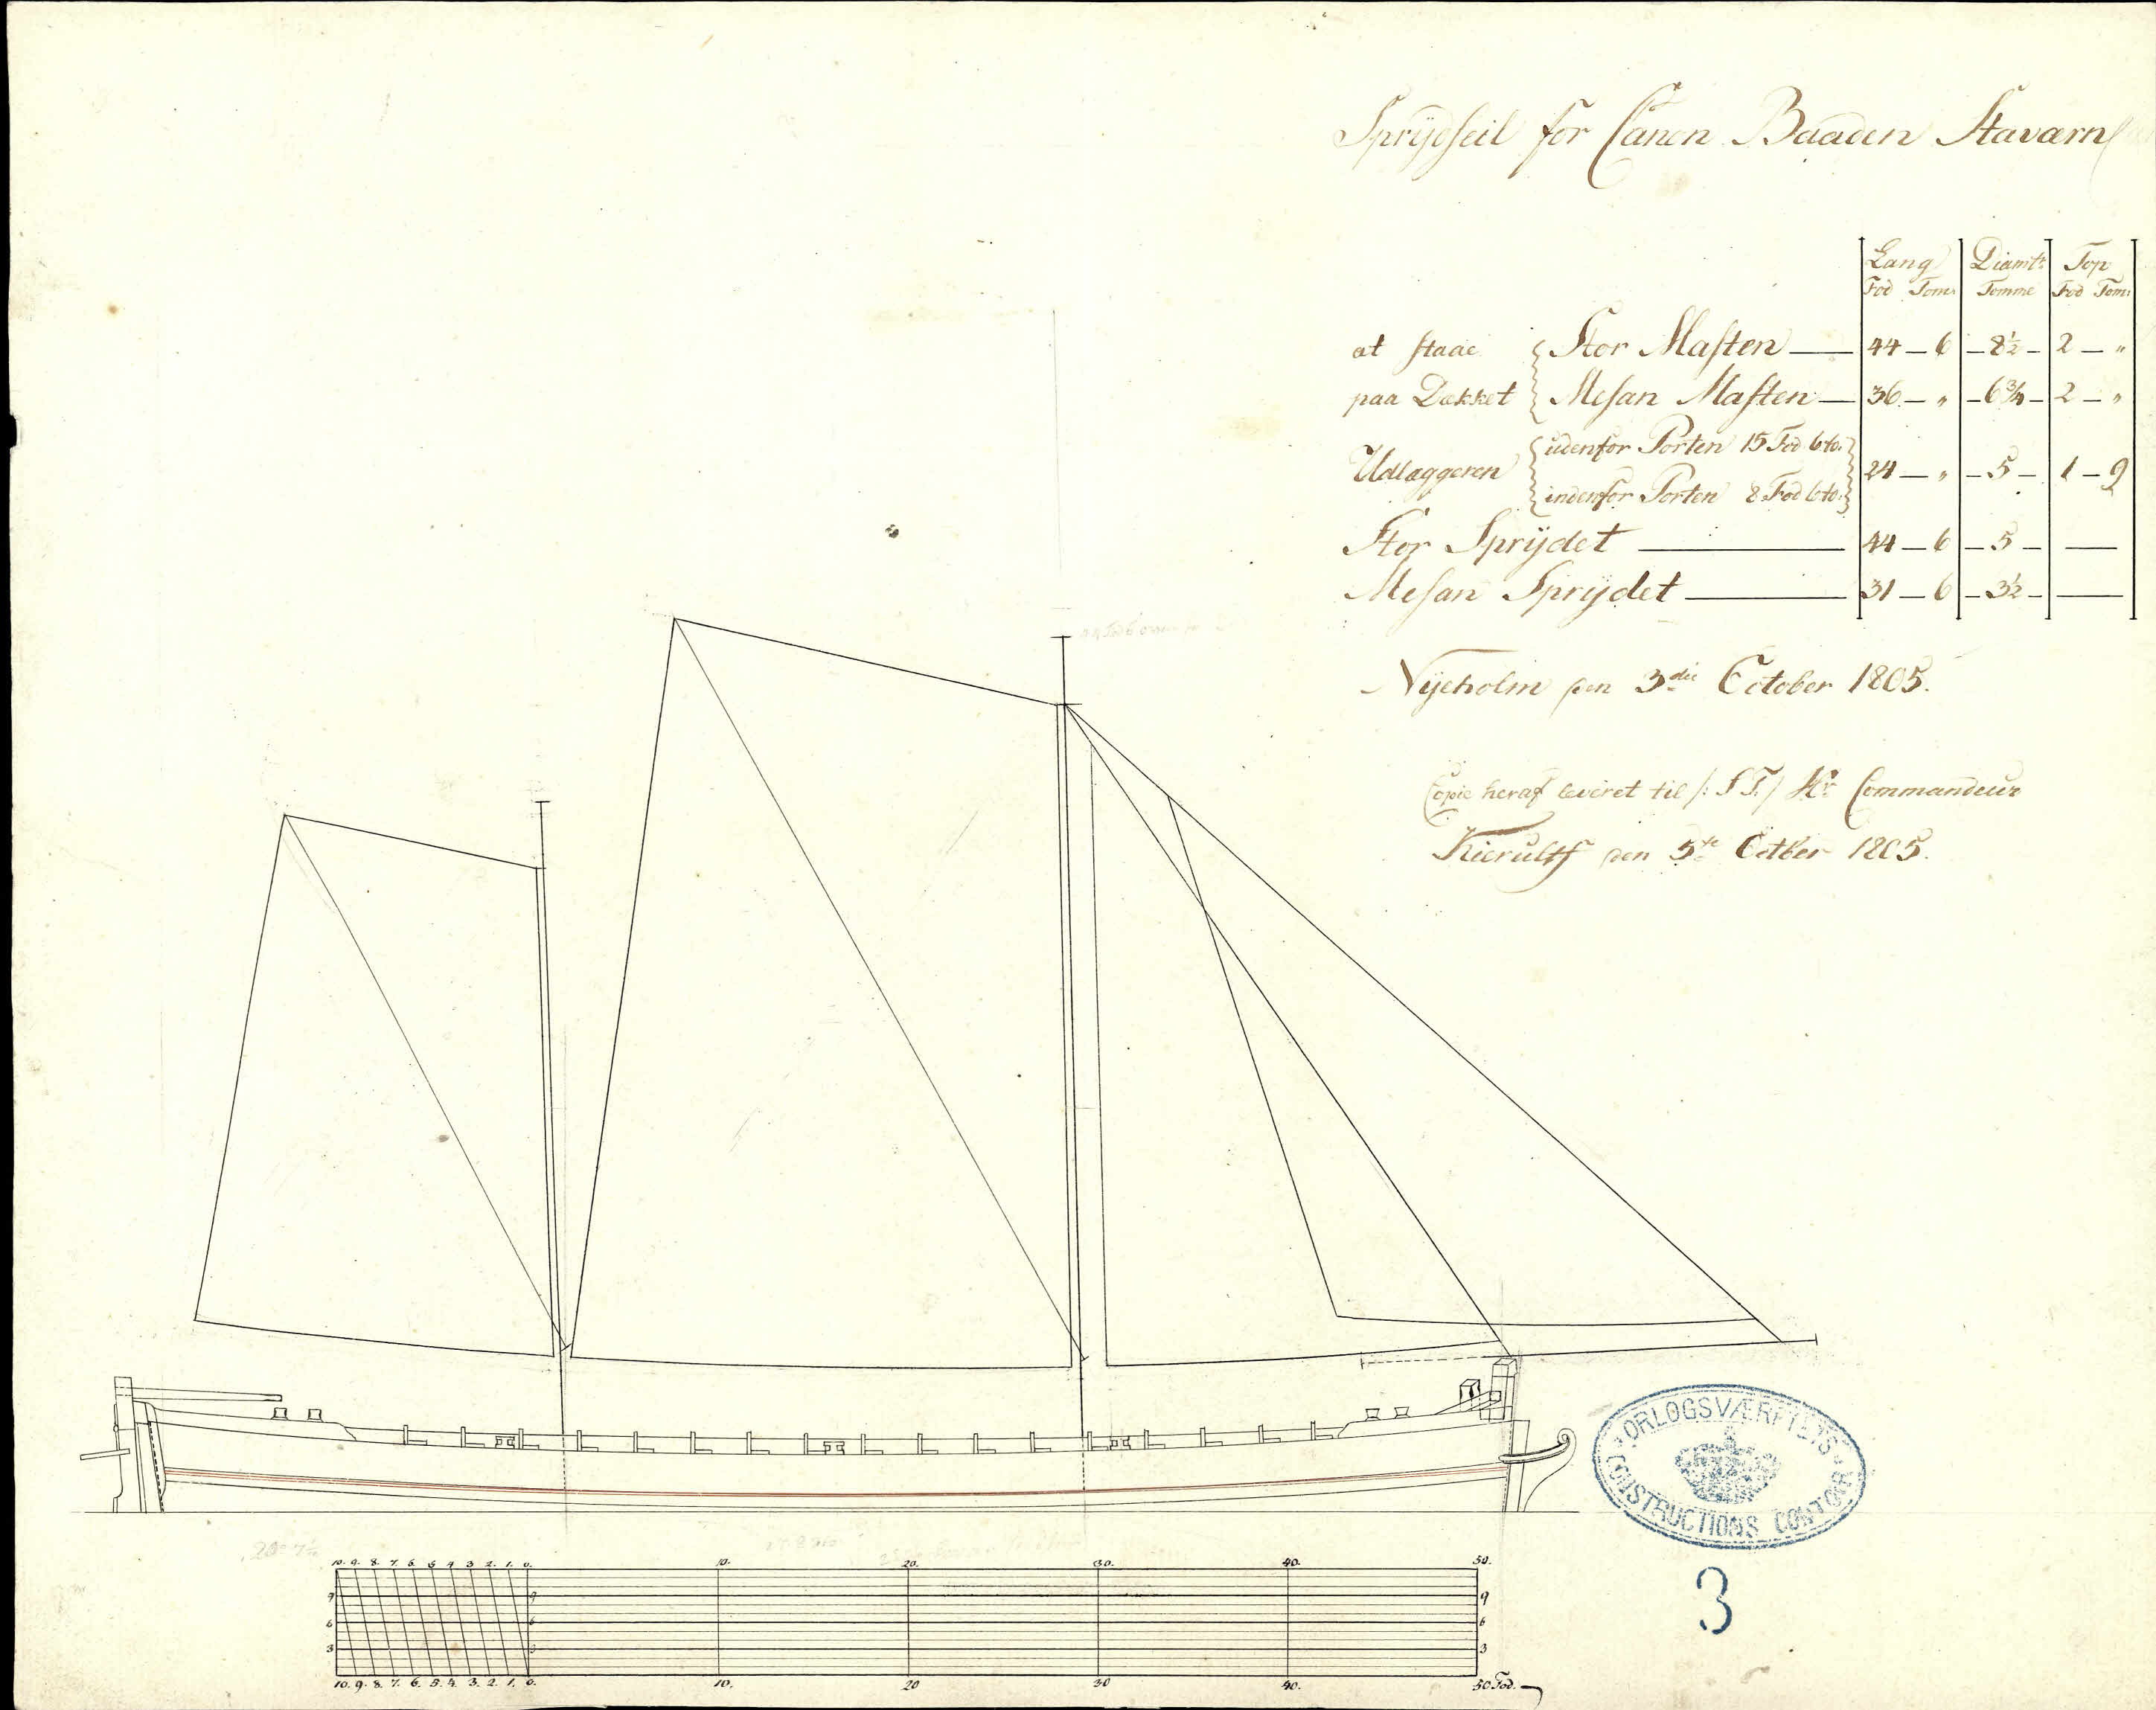 Sprÿdseil for Canon Baaden Staværn
Lang Diamtr Top
Fod Tom: Tomme Fod Tom:
at staae Stor Masten 44 — 6 — 8½ — 2 — "
paa Dækket Mesan Masten 36 — " — 6¾ — 2 — "
udenfor Porten 15 Fod 6 to.
Udlæggeren 24 — " — 5 — 1 — 9
indenfor Porten 8 Fod 6 to.
Stor Sprÿdet 44 — 6 — 5 — —
Mesan Sprÿdet 31 — 6 — 3½ — —
Nÿeholm den 3die October 1805.
Copie heraf leveret til /: S T:/ Hr Commandeur
Kierulff den 5te Octber 1805.
ORLOGSVÆRFTETS
CONSTRUCTIONS CONTOIR
3
10. 9. 8. 7. 6. 5. 4. 3. 2. 1. 0. 10. 20. 30. 40. 50.
9 9 9
6 6 6
3 3 3
10. 9. 8. 7. 6. 5. 4. 3. 2. 1. 0. 10. 20 30 40. 50 Fod.